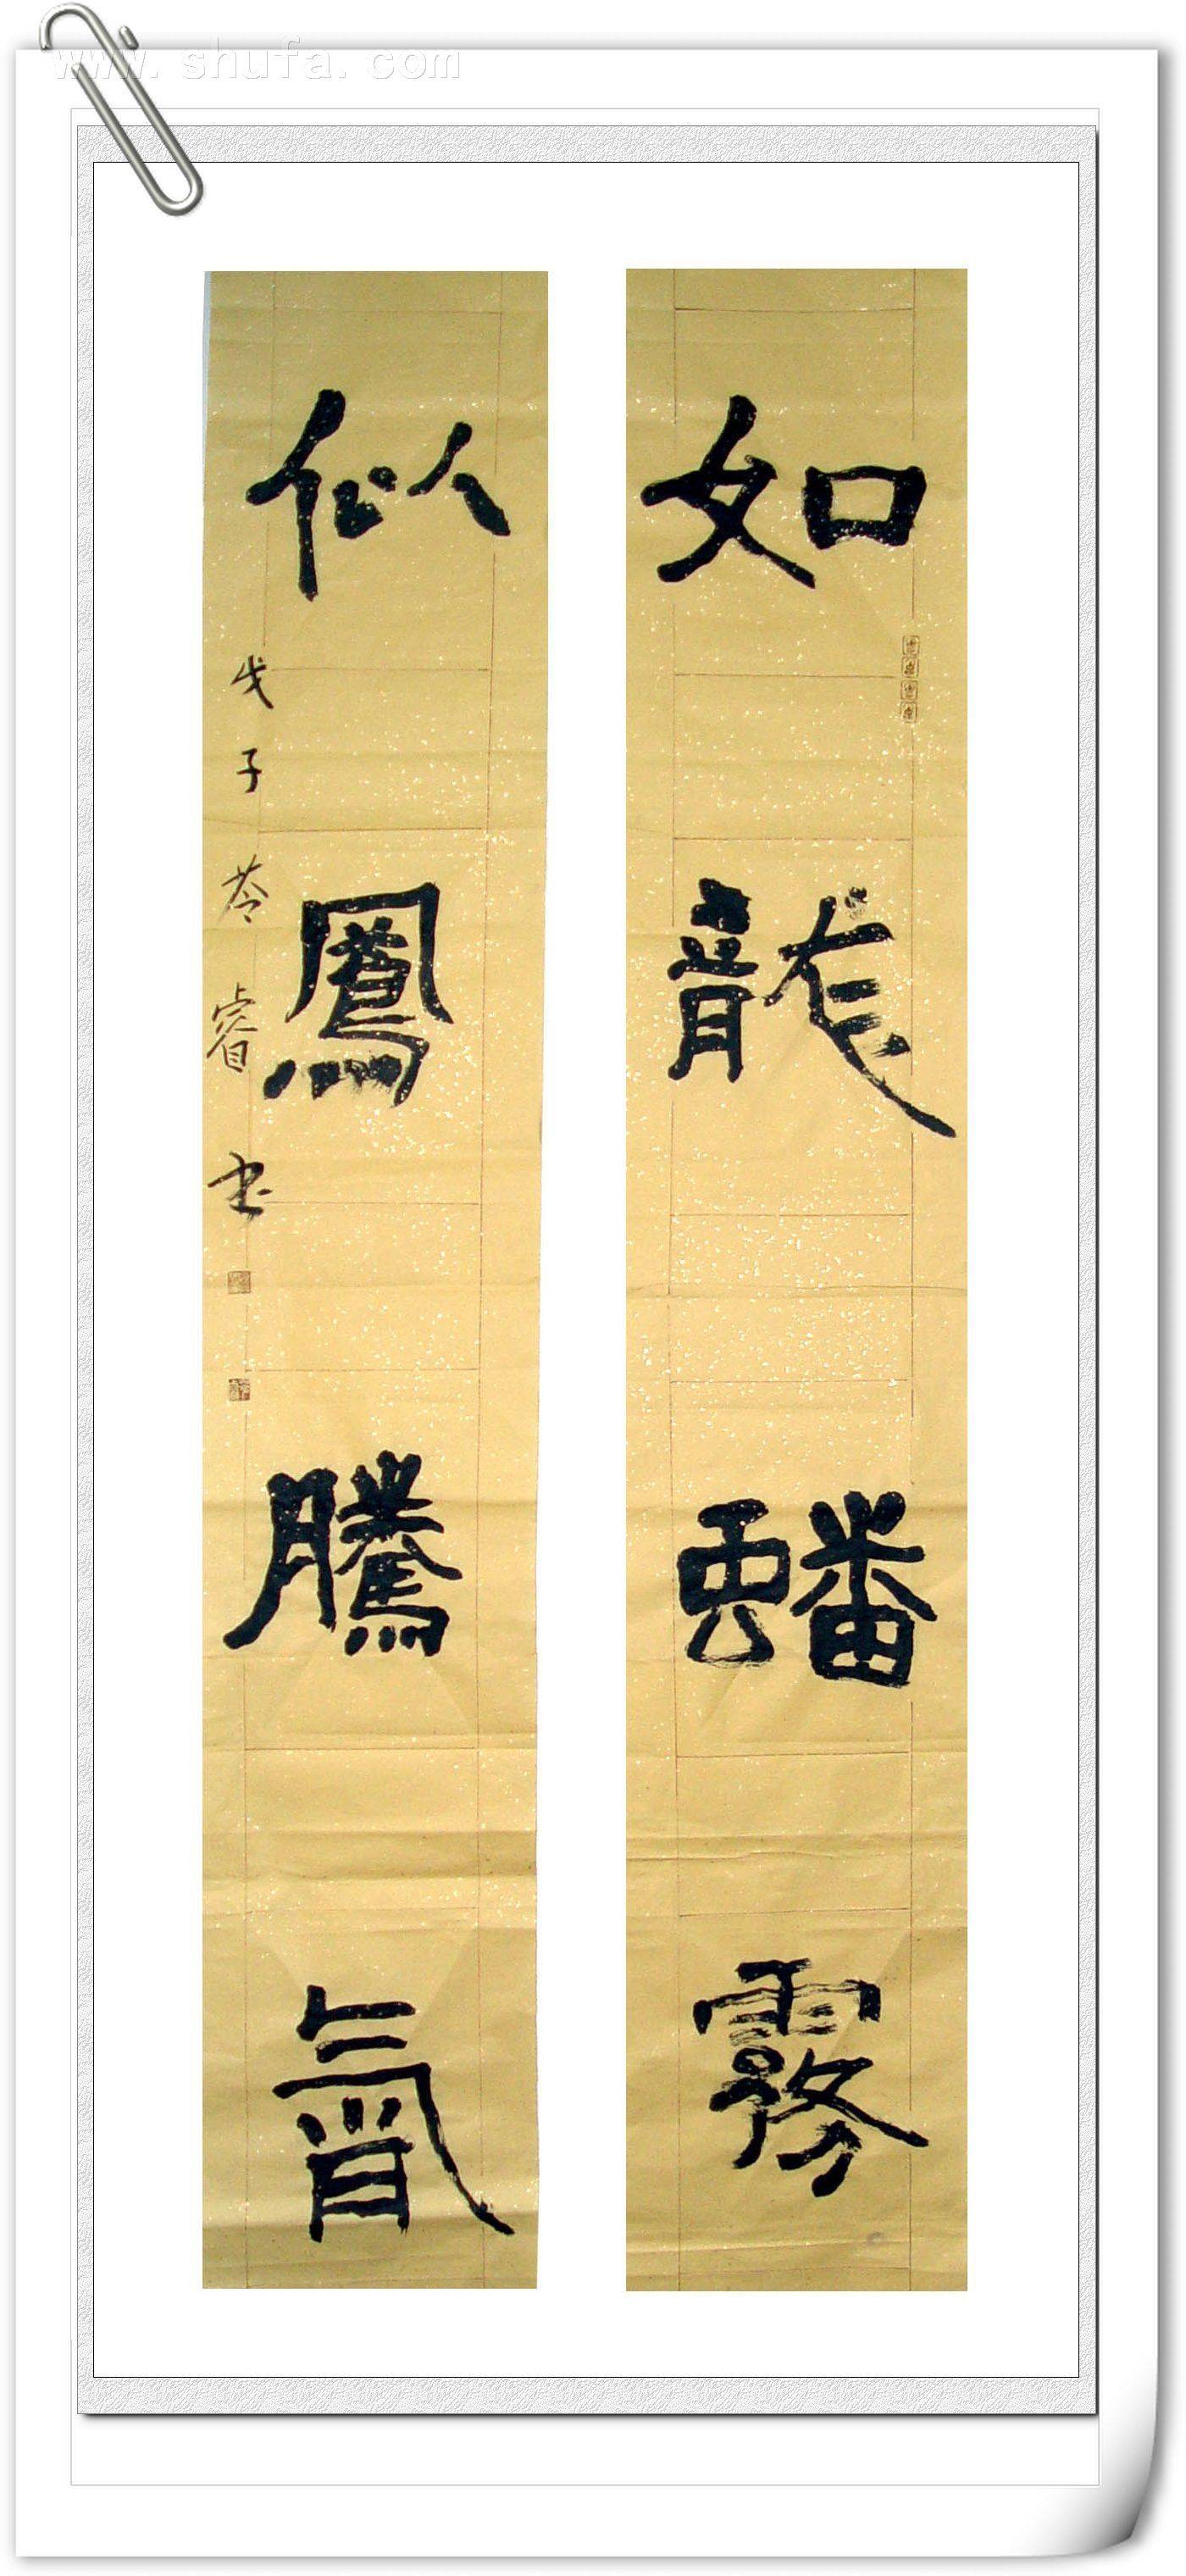 www.shufa.com
如龍蟠霧
似鳳騰氣
戊子苓睿书